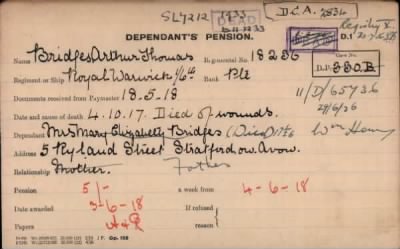 SL7212 1933 D.C.A. 2836
DEAD
DEPENDANT'S PENSION.
Name Bridges Arthur Thomas Regimental No. 18236
Regiment or Ship Royal Warwick 1/6th Rank Pte
Documents received from Paymaster 18-5-18
11/D/65736
Date and cause of death 4.10.17. Died of wounds.
29/6/36
Dependant Mrs Mary Elizabeth Bridges (Died)
Address 5 Ryland Street Stratford on Avon.
Relationship Mother. Father
Pension 5/- a week from 4-6-18
Date awarded 3-6-18 If refused
Papers reason